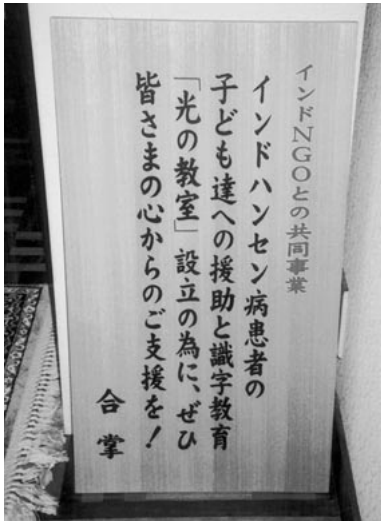 インドNGOとの共同事業
インドハンセン病患者の
子ども達への援助と識字教育
「光の教室」設立の為に、ぜひ
皆さまの心からのご支援を！
合掌